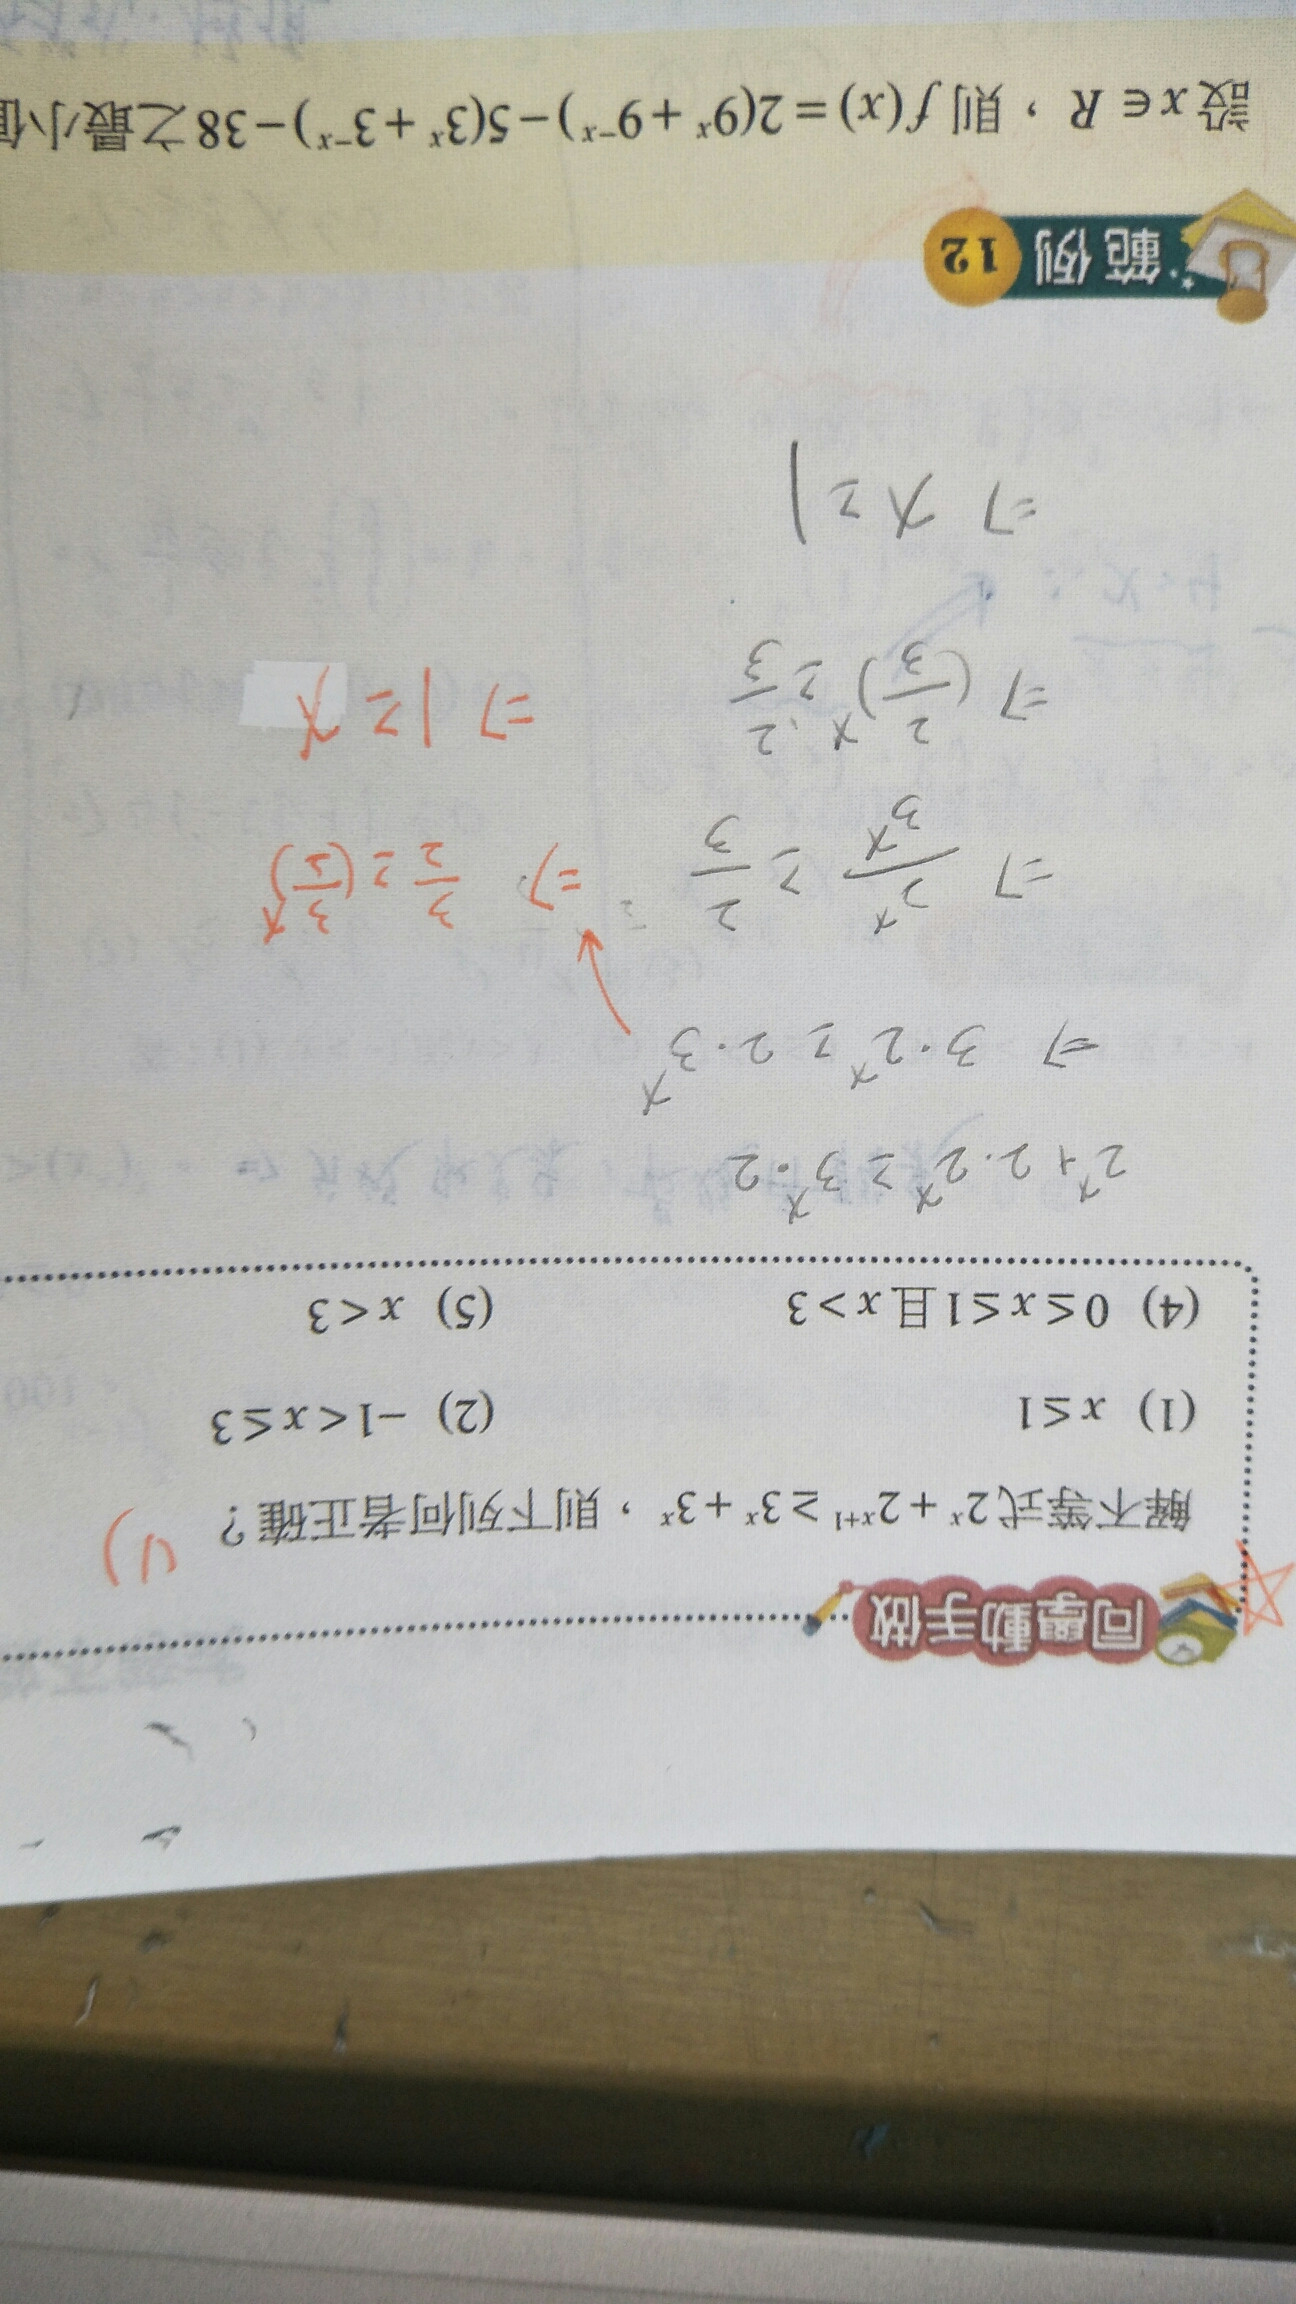 同學動手做
解不等式 2^x + 2^{x+1} ≥ 3^x + 3^x ，則下列何者正確？ (1)
(1) x ≤ 1 (2) −1 < x ≤ 3
(4) 0 ≤ x ≤ 1 且 x > 3 (5) x < 3
2^x + 2·2^x ≥ 3^x·2
⇒ 3·2^x ≥ 2·3^x
⇒ 2^x/3^x ≥ 2/3 ⇒ 3/2 ≥ (3/2)^x
⇒ (2/3)^x ≥ 2/3 ⇒ 1 ≥ x
⇒ x ≥ 1
範例 12
設 x ∈ R ，則 f(x) = 2(9^x + 9^{−x}) − 5(3^x + 3^{−x}) − 38 之最小值